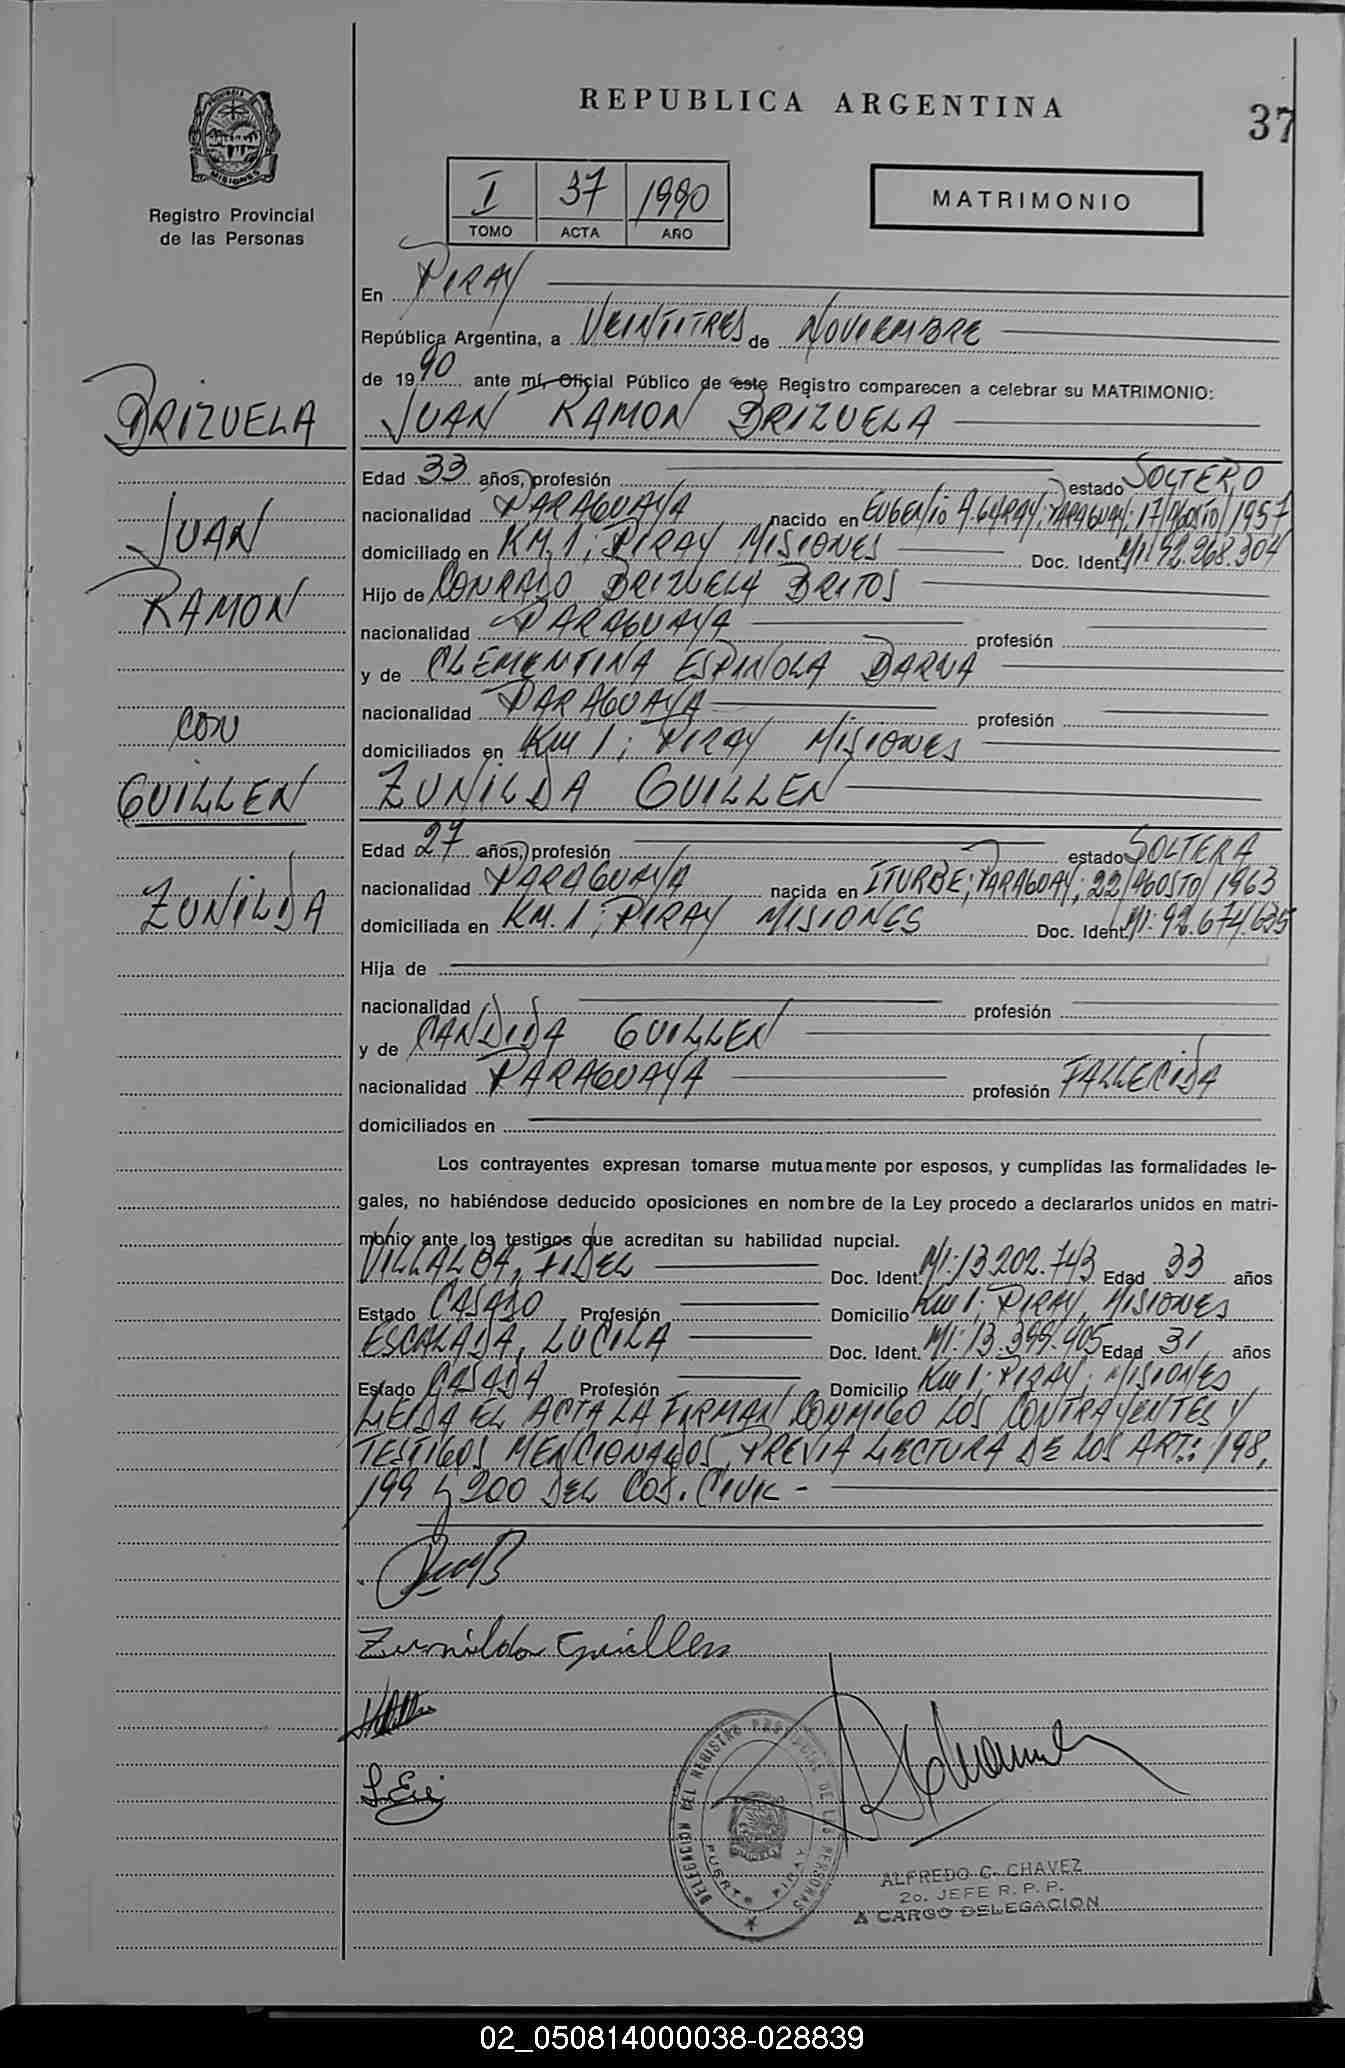 REPUBLICA ARGENTINA
37
PROVINCIA DE
MISIONES
Registro Provincial
de las Personas
I 37 1990
TOMO ACTA AÑO
MATRIMONIO
En PIRAY
República Argentina, a VEINTITRES de NOVIEMBRE
de 1990 ante mí, Oficial Público de este Registro comparecen a celebrar su MATRIMONIO:
BRIZUELA
JUAN RAMON BRIZUELA
Edad 33 años, profesión estado SOLTERO
nacionalidad PARAGUAYA nacido en EUGENIO A. GARAY; PARAGUAY; 17/AGOSTO/1957
JUAN
domiciliado en KM. 1; PIRAY MISIONES Doc. Ident. MI: 92.268.304
Hijo de CONRADO BRIZUELA BRITOS
RAMON
nacionalidad PARAGUAYA profesión
y de CLEMENTINA ESPINOLA
nacionalidad PARAGUAYA profesión
CON
domiciliados en KM 1; PIRAY MISIONES
GUILLEN
ZUNILDA GUILLEN
Edad 27 años, profesión estado SOLTERA
nacionalidad PARAGUAYA nacida en ITURBE; PARAGUAY; 22/AGOSTO/1963
ZUNILDA
domiciliada en KM. 1; PIRAY MISIONES Doc. Ident. MI: 92.674.635
Hija de
nacionalidad profesión
y de CANDIDA GUILLEN
nacionalidad PARAGUAYA profesión FALLECIDA
domiciliados en
Los contrayentes expresan tomarse mutuamente por esposos, y cumplidas las formalidades le-
gales, no habiéndose deducido oposiciones en nombre de la Ley procedo a declararlos unidos en matri-
monio ante los testigos que acreditan su habilidad nupcial.
VILLALBA, FIDEL Doc. Ident. MI: 13.202.743 Edad 33 años
Estado CASADO Profesión Domicilio KM 1; PIRAY, MISIONES
ESCALADA, LUCILA Doc. Ident. MI: 13.399.405 Edad 31 años
Estado CASADA Profesión Domicilio KM 1; PIRAY; MISIONES
LEIDA EL ACTA LA FIRMAN CONMIGO LOS CONTRAYENTES Y
TESTIGOS MENCIONADOS, PREVIA LECTURA DE LOS ART.: 198,
199 y 200 DEL COD. CIVIL -
Zunilda Guillen
DELEGACION DEL REGISTRO PROVINCIAL DE LAS PERSONAS
PUERTO PIRAY
ALFREDO C. CHAVEZ
2o. JEFE R. P. P.
A CARGO DELEGACION
02_050814000038-028839